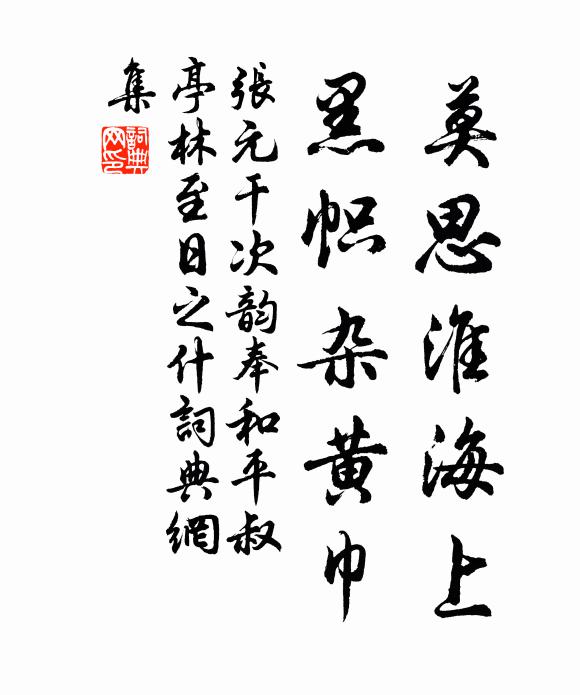 莫思淮海上
黑帜杂黄巾
張元干次韵奉和平叔
亭林至日之什詞典網
集
詞典
网印